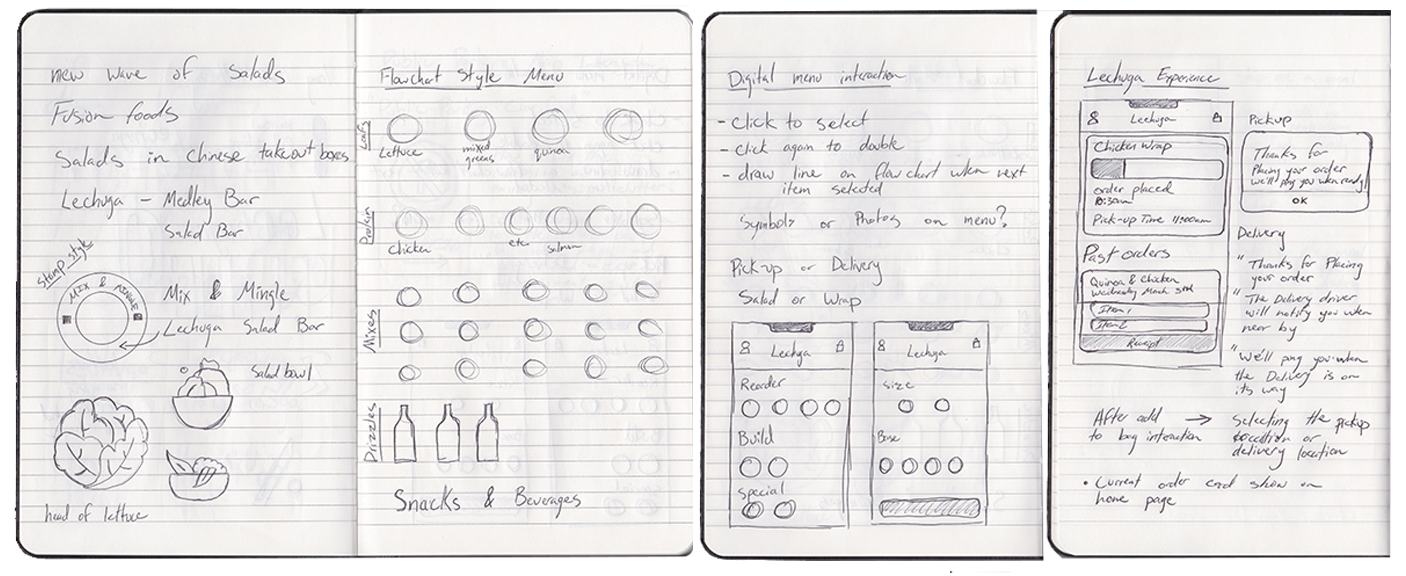 new wave of salads
Fusion foods
Salads in chinese takeout boxes
Lechuga - Medley Bar
Salad Bar
Stamp style
MIX & MINGLE
Mix & Mingle
Lechuga Salad Bar
Salad bowl
head of lettuce
Flowchart Style Menu
Leafs
Lettuce
mixed
greens
quinoa
Protein
chicken
etc
salmon
Mixes
Drizzles
Snacks & Beverages
Digital menu interaction
- Click to select
- click again to double
- draw line on flow chart when next
item selected
Symbols or Photos on menu?
Pick-up or Delivery
Salad or Wrap
Lechuga
Reorder
Build
Special
Lechuga
Size
Base
Lechuga Experience
Lechuga
Chicken Wrap
order placed
10:30am
Pick-up Time 11:00am
Past orders
Quinoa & Chicken
Wednesday March 3rd
Item 1
Item 2
Receipt
Pickup
Thanks for
Placing your order
we'll ping you when ready!
OK
Delivery
" Thanks for Placing
your order
" The Delivery driver
will notify you when
near by
" We'll ping you when
the Delivery is on
its way
After add →
to bag interaction
Selecting the pickup
location or
delivery location
• Current order card show on
home page